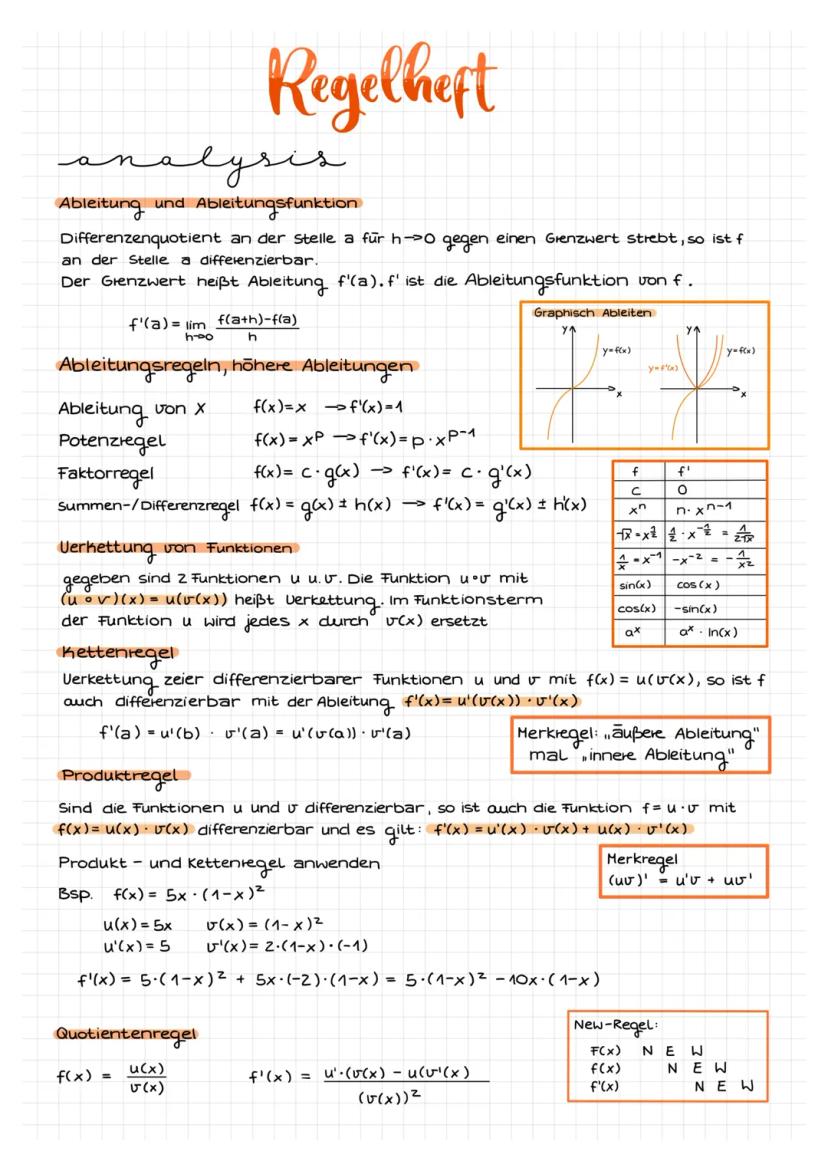 Regelheft
analysis
Ableitung und Ableitungsfunktion
Differenzenquotient an der Stelle a für h→0 gegen einen Grenzwert strebt, so ist f
an der Stelle a differenzierbar.
Der Grenzwert heißt Ableitung f'(a). f' ist die Ableitungsfunktion von f.
f'(a) = lim h→0 f(a+h)-f(a) / h
Graphisch Ableiten
y y
y=f(x) y=f'(x) y=f(x)
x x
Ableitungsregeln, höhere Ableitungen
Ableitung von X f(x)=x → f'(x)=1
Potenzregel f(x) = x^p → f'(x) = p · x^p-1
Faktorregel f(x) = c · g(x) → f'(x) = c · g'(x)
Summen-/Differenzregel f(x) = g(x) ± h(x) → f'(x) = g'(x) ± h'(x)
f f'
c 0
x^n n · x^n-1
√x = x^1/2 1/2 · x^-1/2 = 1/2√x
1/x = x^-1 -x^-2 = - 1/x^2
sin(x) cos(x)
cos(x) -sin(x)
a^x a^x · ln(x)
Verkettung von Funktionen
gegeben sind 2 Funktionen u u. v. Die Funktion u∘v mit
(u ∘ v)(x) = u(v(x)) heißt Verkettung. Im Funktionsterm
der Funktion u wird jedes x durch v(x) ersetzt
Kettenregel
Verkettung zeier differenzierbarer Funktionen u und v mit f(x) = u(v(x), so ist f
auch differenzierbar mit der Ableitung f'(x) = u'(v(x)) · v'(x)
f'(a) = u'(b) · v'(a) = u'(v(a)) · v'(a)
Merkregel: „äußere Ableitung"
mal „innere Ableitung"
Produktregel
Sind die Funktionen u und v differenzierbar, so ist auch die Funktion f = u · v mit
f(x) = u(x) · v(x) differenzierbar und es gilt: f'(x) = u'(x) · v(x) + u(x) · v'(x)
Produkt - und Kettenregel anwenden
Merkregel
(uv)' = u'v + uv'
Bsp. f(x) = 5x · (1-x)²
u(x) = 5x v(x) = (1-x)²
u'(x) = 5 v'(x) = 2·(1-x)·(-1)
f'(x) = 5·(1-x)² + 5x·(-2)·(1-x) = 5·(1-x)² - 10x·(1-x)
Quotientenregel
f(x) = u(x) / v(x) f'(x) = u'·(v(x) - u(v'(x) / (v(x))²
New-Regel:
F(x) N E W
f(x) N E W
f'(x) N E W